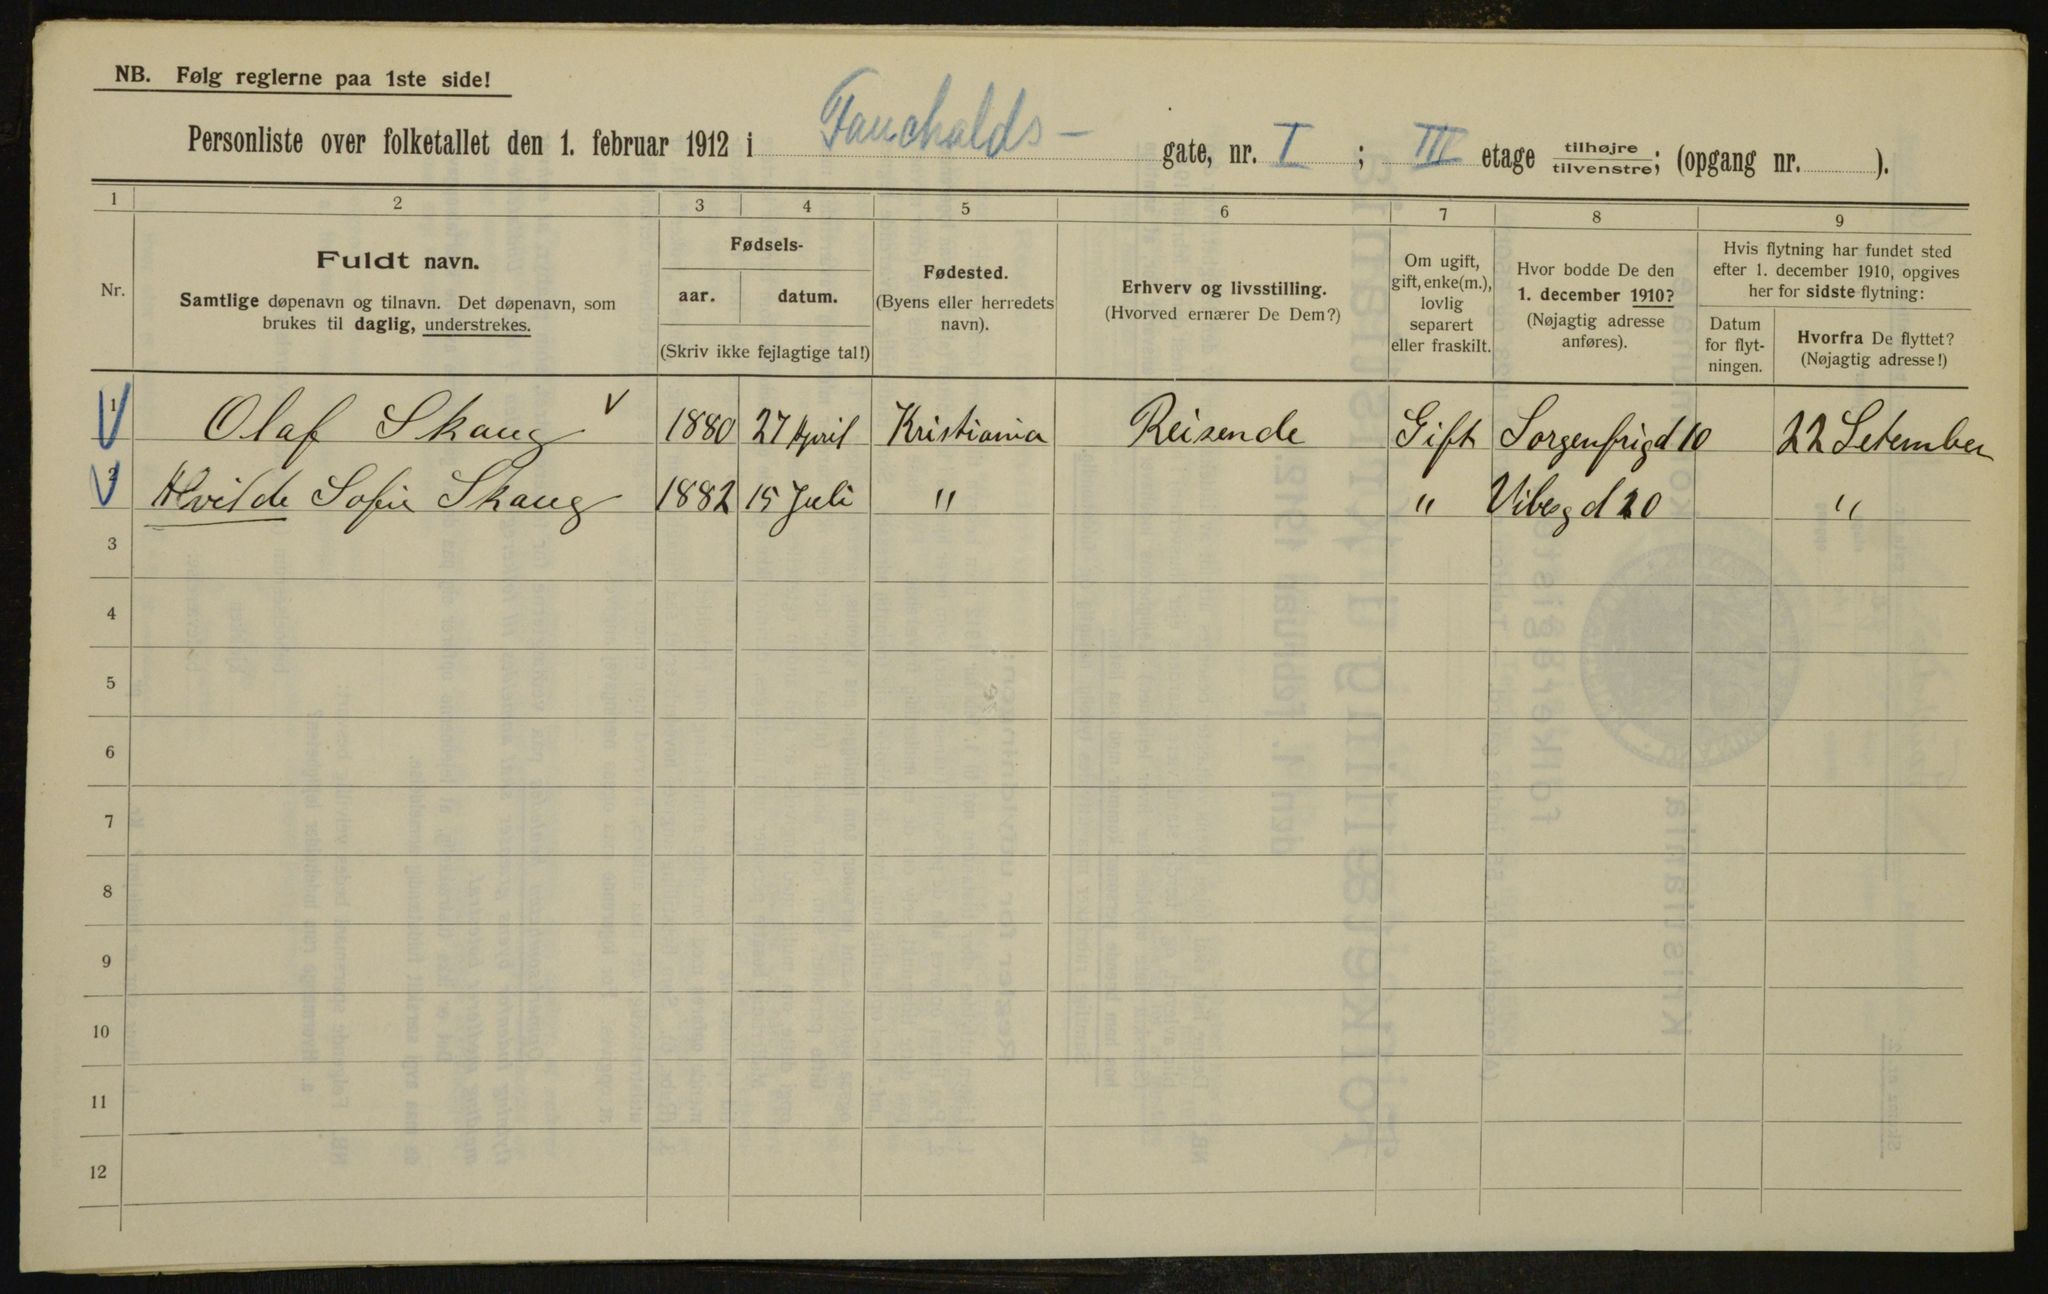 NB. Følg reglerne paa 1ste side!
Personliste over folketallet den 1. februar 1912 i Fauchalds- gate, nr. I ; III etage tilhøjre/tilvenstre; (opgang nr. ).
1 2 3 4 5 6 7 8 9
Nr.
Fuldt navn.
Samtlige døpenavn og tilnavn. Det døpenavn, som
brukes til daglig, understrekes.
Fødsels-
aar. datum.
(Skriv ikke fejlagtige tal!)
Fødested.
(Byens eller herredets
navn).
Erhverv og livsstilling.
(Hvorved ernærer De Dem?)
Om ugift,
gift, enke(m.),
lovlig
separert
eller fraskilt.
Hvor bodde De den
1. december 1910?
(Nøjagtig adresse
anføres).
Hvis flytning har fundet sted
efter 1. december 1910, opgives
her for sidste flytning:
Datum
for flyt-
ningen.
Hvorfra De flyttet?
(Nøjagtig adresse!)
1 Olaf Skaug 1880 27 April Kristiania Reisende Gift Sorgenfrigd 10 22 Setember
2 Hvilde Sofie Skaug 1882 15 Juli " " Vibesgd 20 "
3
4
5
6
7
8
9
10
11
12